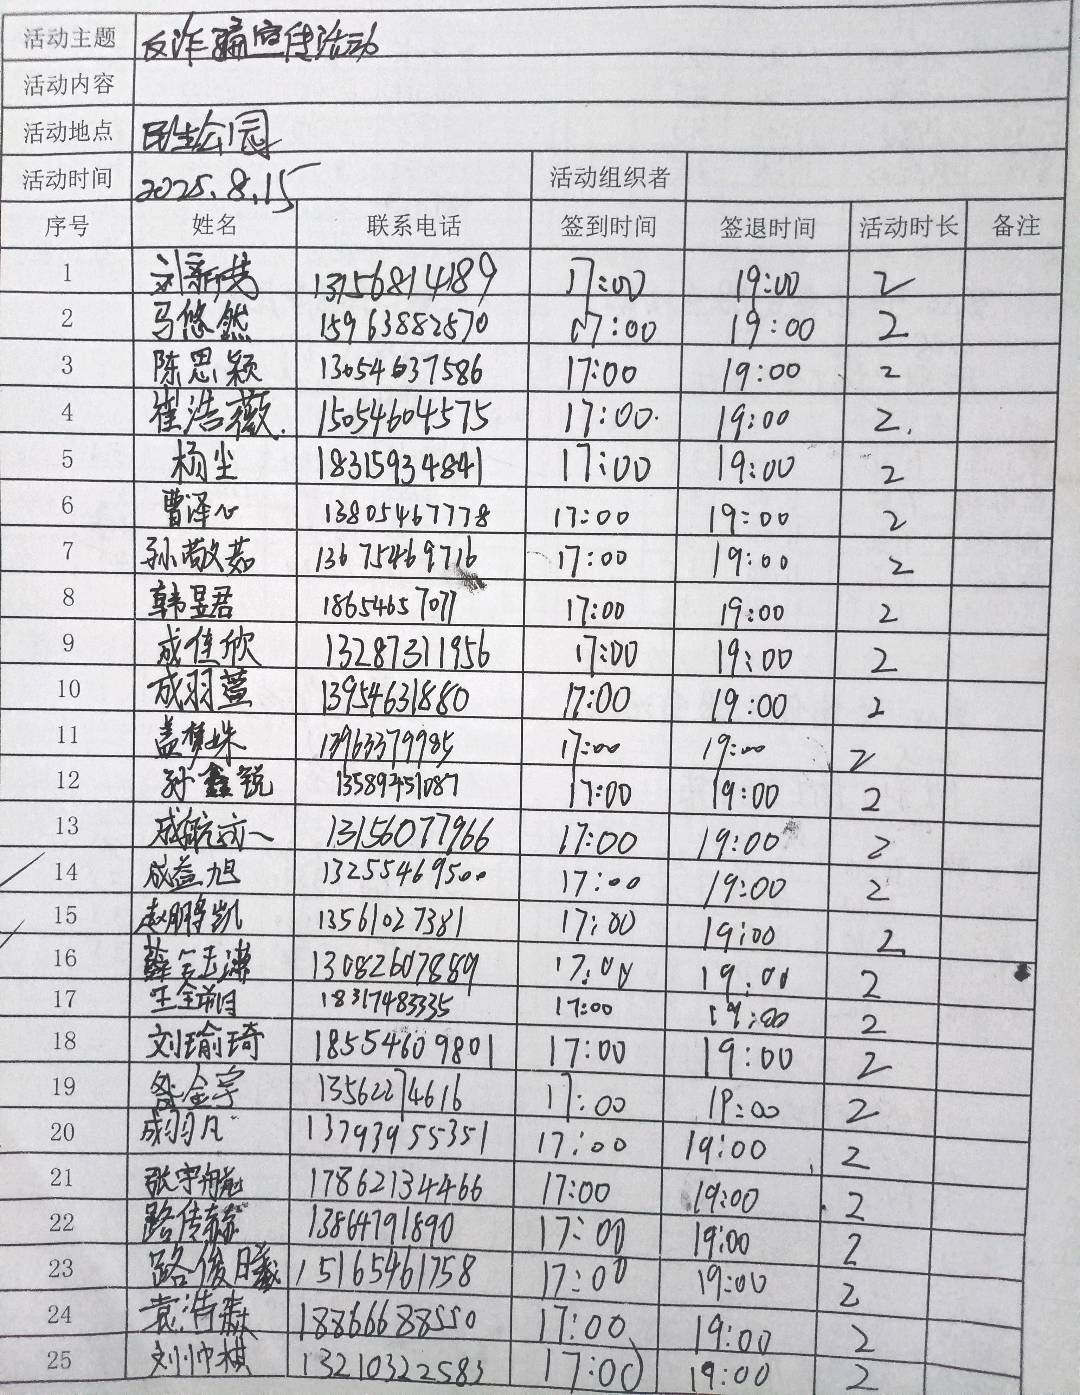 活动主题 反诈骗宣传活动
活动内容
活动地点 民生公园
活动时间 2025.8.15 活动组织者
序号 姓名 联系电话 签到时间 签退时间 活动时长 备注
1 刘新 13156814189 17:00 19:00 2
2 马悠然 15963882570 17:00 19:00 2
3 陈思颖 13054637586 17:00 19:00 2
4 崔浩薇 15054604575 17:00 19:00 2
5 杨尘 18315934841 17:00 19:00 2
6 曹泽心 13805467778 17:00 19:00 2
7 孙敬茹 13675469716 17:00 19:00 2
8 韩昱君 18654657077 17:00 19:00 2
9 成佳欣 13287311956 17:00 19:00 2
10 成羽萱 13954631880 17:00 19:00 2
11 盖梦姝 13963379985 17:00 19:00 2
12 孙鑫锐 13589451087 17:00 19:00 2
13 成航 13156077966 17:00 19:00 2
14 成益旭 13255469500 17:00 19:00 2
15 赵鹏凯 13561027381 17:00 19:00 2
16 薛 13082607889 17:00 19:00 2
17 王 18317483335 17:00 19:00 2
18 刘瑜琦 18554609801 17:00 19:00 2
19 金宇 13562274616 17:00 19:00 2
20 成羽凡 13793955351 17:00 19:00 2
21 张宇航 17862134466 17:00 19:00 2
22 路传赫 13864791890 17:00 19:00 2
23 路俊曦 15165461758 17:00 19:00 2
24 袁浩森 18866688550 17:00 19:00 2
25 刘帅棋 13210322583 17:00 19:00 2